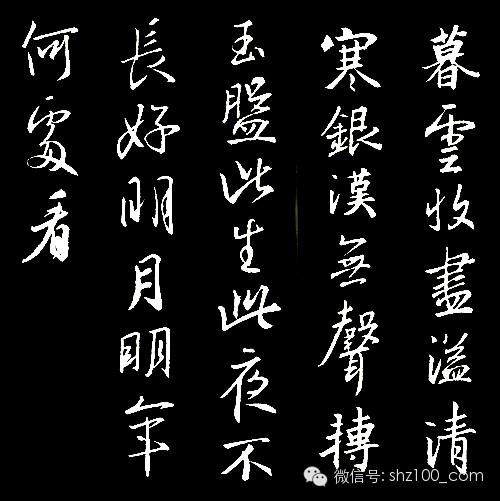 暮雲收盡溢清
寒銀漢無聲轉
玉盤此生此夜不
長好明月明年
何處看
微信号: shz100_com